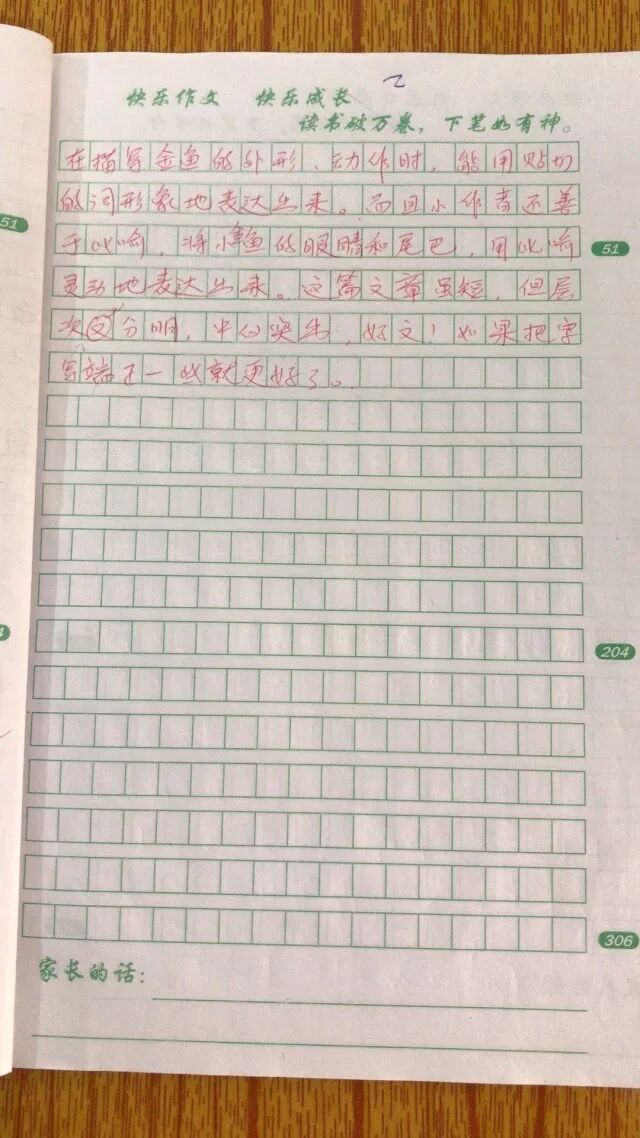 乙
快乐作文 快乐成长
读书破万卷，下笔如有神。
在描写金鱼的外形、动作时，能用贴切
的词形象地表达出来。而且小作者还善
51
于比喻，将小金鱼的眼睛和尾巴，用比喻
51
灵动地表达出来。这篇文章虽短，但层
次分明，中心突出，好文！如果把字
写端正一些就更好了。
204
306
家长的话：